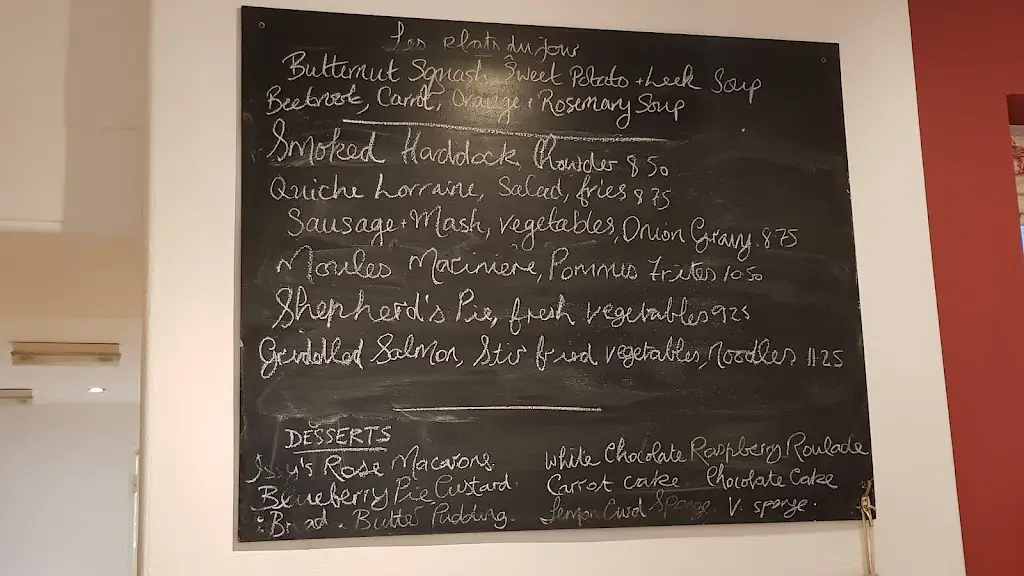 Les plats du jour
Butternut Squash, Sweet Potato + Leek Soup
Beetroot, Carrot, Orange + Rosemary Soup
Smoked Haddock Chowder 8 50
Quiche Lorraine, Salad, fries 8 75
Sausage + Mash, vegetables, Onion Gravy 8 75
Moules Mariniere, Pommes Frites 10 50
Shepherd's Pie, fresh vegetables 9 25
Griddled Salmon, Stir fried vegetables, Noodles 11 25
DESSERTS
Rose Macarons
White Chocolate Raspberry Roulade
Blueberry Pie Custard
Carrot cake. Chocolate Cake
Bread. Butter Pudding
Lemon Curd Sponge V. sponge.